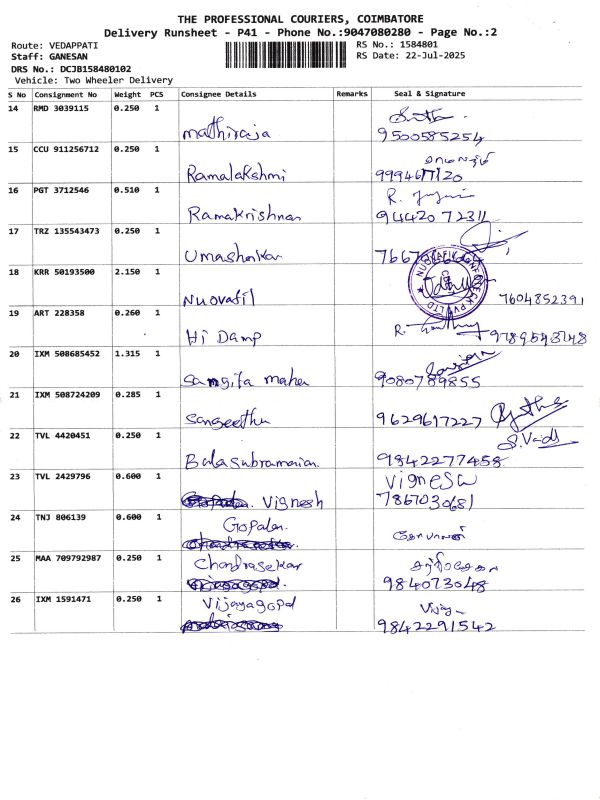 THE PROFESSIONAL COURIERS, COIMBATORE
Delivery Runsheet - P41 - Phone No.:9047080280 - Page No.:2
Route: VEDAPPATI RS No.: 1584801
Staff: GANESAN RS Date: 22-Jul-2025
DRS No.: DCJB158480102
Vehicle: Two Wheeler Delivery
S No Consignment No Weight PCS Consignee Details Remarks Seal & Signature
14 RMD 3039115 0.250 1
mathiraja 9500585254
15 CCU 911256712 0.250 1
Ramalakshmi
16 PGT 3712546 0.510 1
Ramakrishnan 94420 72311
17 TRZ 135543473 0.250 1
Umashankar
18 KRR 50193500 2.150 1
Nuovafil 7604852391
19 ART 228358 0.260 1
Hi Damp
20 IXM 508685452 1.315 1
Sangita maher 9080789855
21 IXM 508724209 0.285 1
Sangeetha 9629617227
22 TVL 4420451 0.250 1 S.Vadi
Balasubramanian 9842277458
23 TVL 2429796 0.600 1 Vignesh
Vignesh 786703681
24 TNJ 806139 0.600 1 Gopalan.
கோபாலன்
25 MAA 709792987 0.250 1 Chandrasekar
984073048
26 IXM 1591471 0.250 1 Vijayagopal Vijay
9842291542